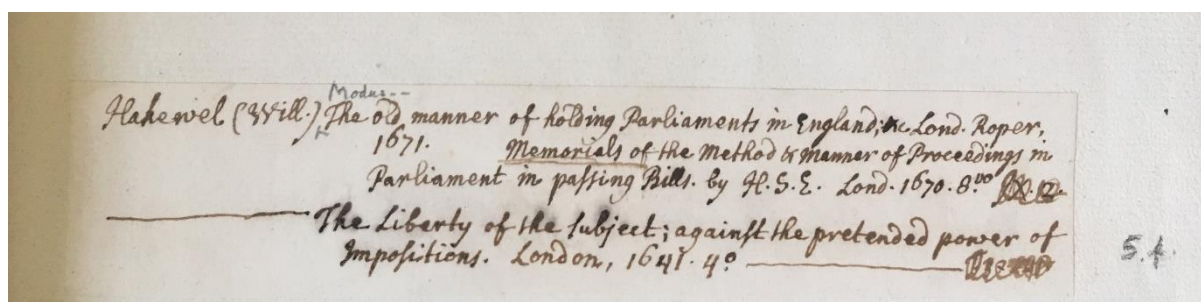 Modus--
Hakewel (Will.) The old manner of holding Parliaments in England; &c Lond. Roper,
1671. Memorials of the Method & Manner of Proceedings in
Parliament in passing Bills. by H.S.E. Lond. 1670. 8vo
The Liberty of the subject; against the pretended power of
Impositions. London, 1641. 4o
5.f.